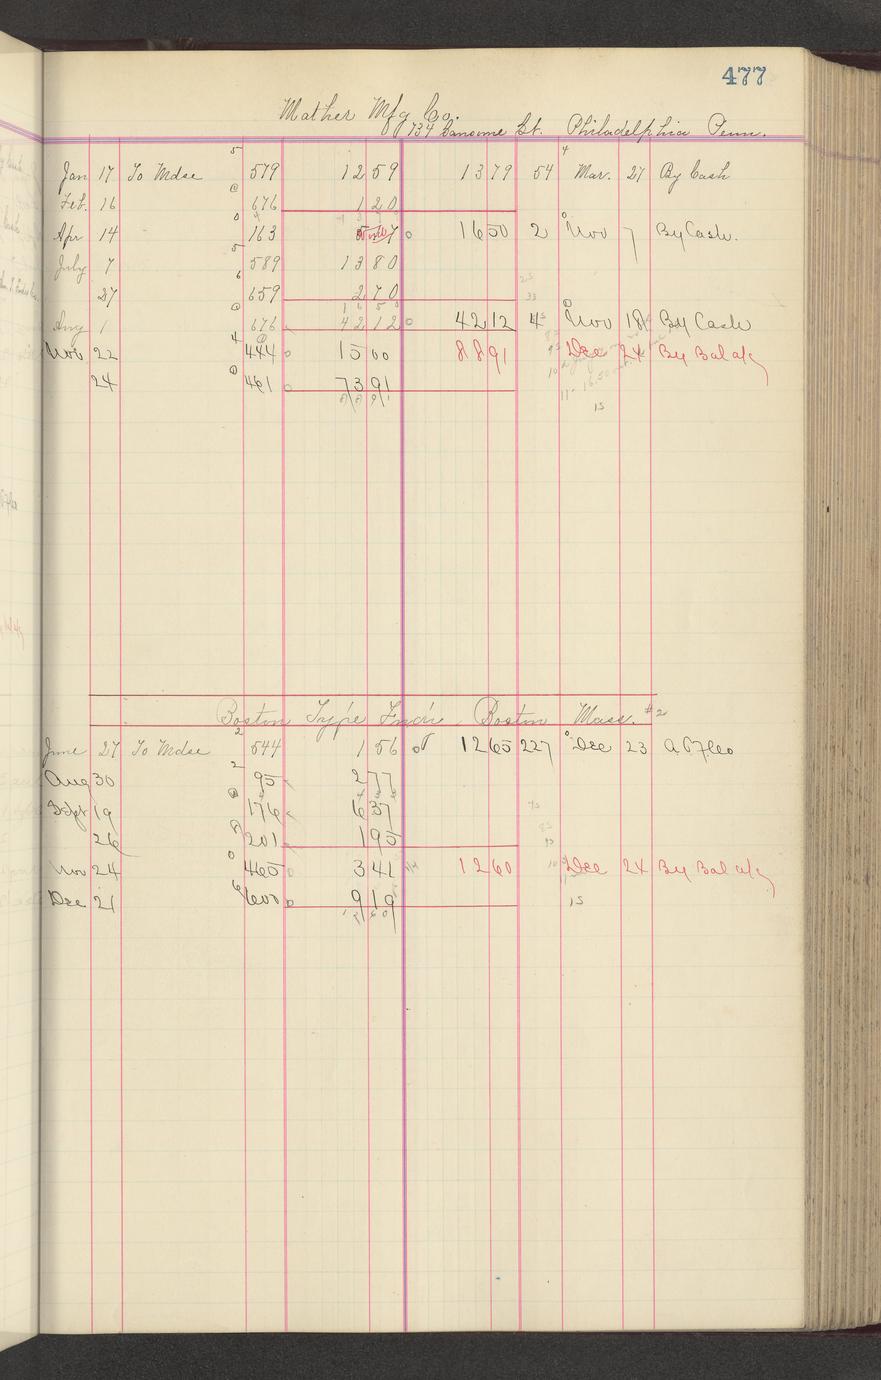 477
Mather Mfg Co.
734 Sansome St. Philadelphia Penn.
Jan 17 To Mdse 5 579 12 59 13 79 54 4 Mar. 27 By Cash
Feb. 16 0 676 1 20
Apr 14 0 163 7 0 16 50 2 0 Nov 7 By Cash.
July 7 5 589 13 80
27 6 659 2 70
Aug 1 0 676 42 12 0 42 12 4 0 Nov 18 By Cash
Nov 22 4 444 0 15 00 88 91 Dec 24 By Bal a/c
24 0 461 0 73 91
88 91
15
Boston Type Fndry Boston Mass. #2
June 27 To Mdse 2 544 1 56 12 65 227 0 Dec 23
Aug 30 2 95 2 77
Sept 19 0 176 6 37
26 201 1 95
Nov 24 0 465 0 3 41 12 60 Dec 24 By Bal a/c
Dec 21 6 600 0 9 19
12 60
15